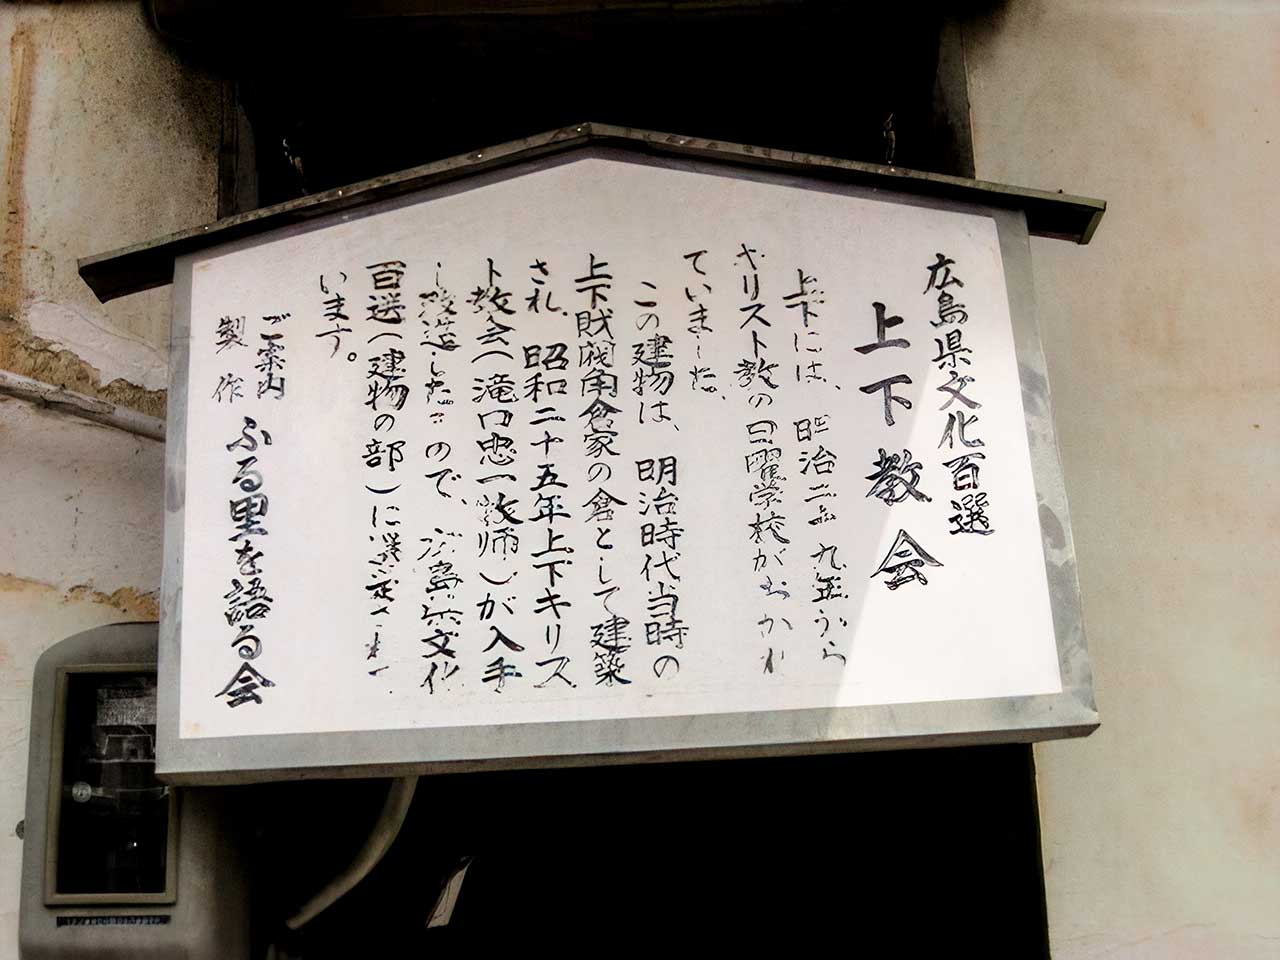 広島県文化百選
上下教会
上下には、明治二十九年から
キリスト教の日曜学校がおかれ
ていました。
この建物は、明治時代当時の
上下財閥角倉家の倉として建築
され、昭和二十五年上下キリス
ト教会(滝口忠一牧師)が入手
し改造したもので、広島県文化
百選(建物の部)に選定されて
います。
ご案内
製作
ふる里を語る会